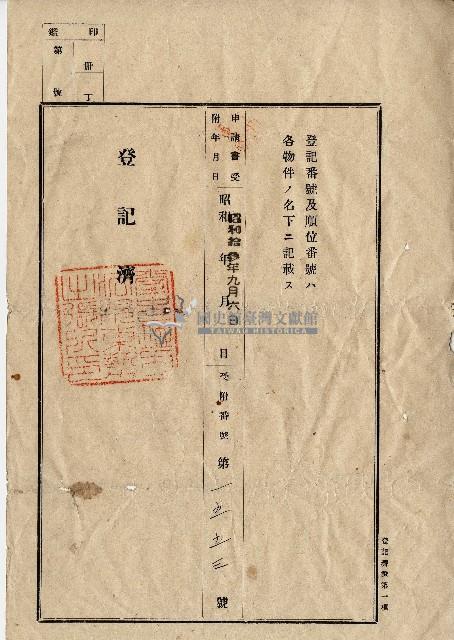 印鑑
第 冊
號 丁
登記番號及順位番號ハ
各物件ノ名下ニ記載ス
申請書受
附年月日
昭和 年 月 日
昭和拾參年九月六日
受附番號
第一五五三號
登記濟
國史館臺灣文獻館
TAIWAN HISTORICA